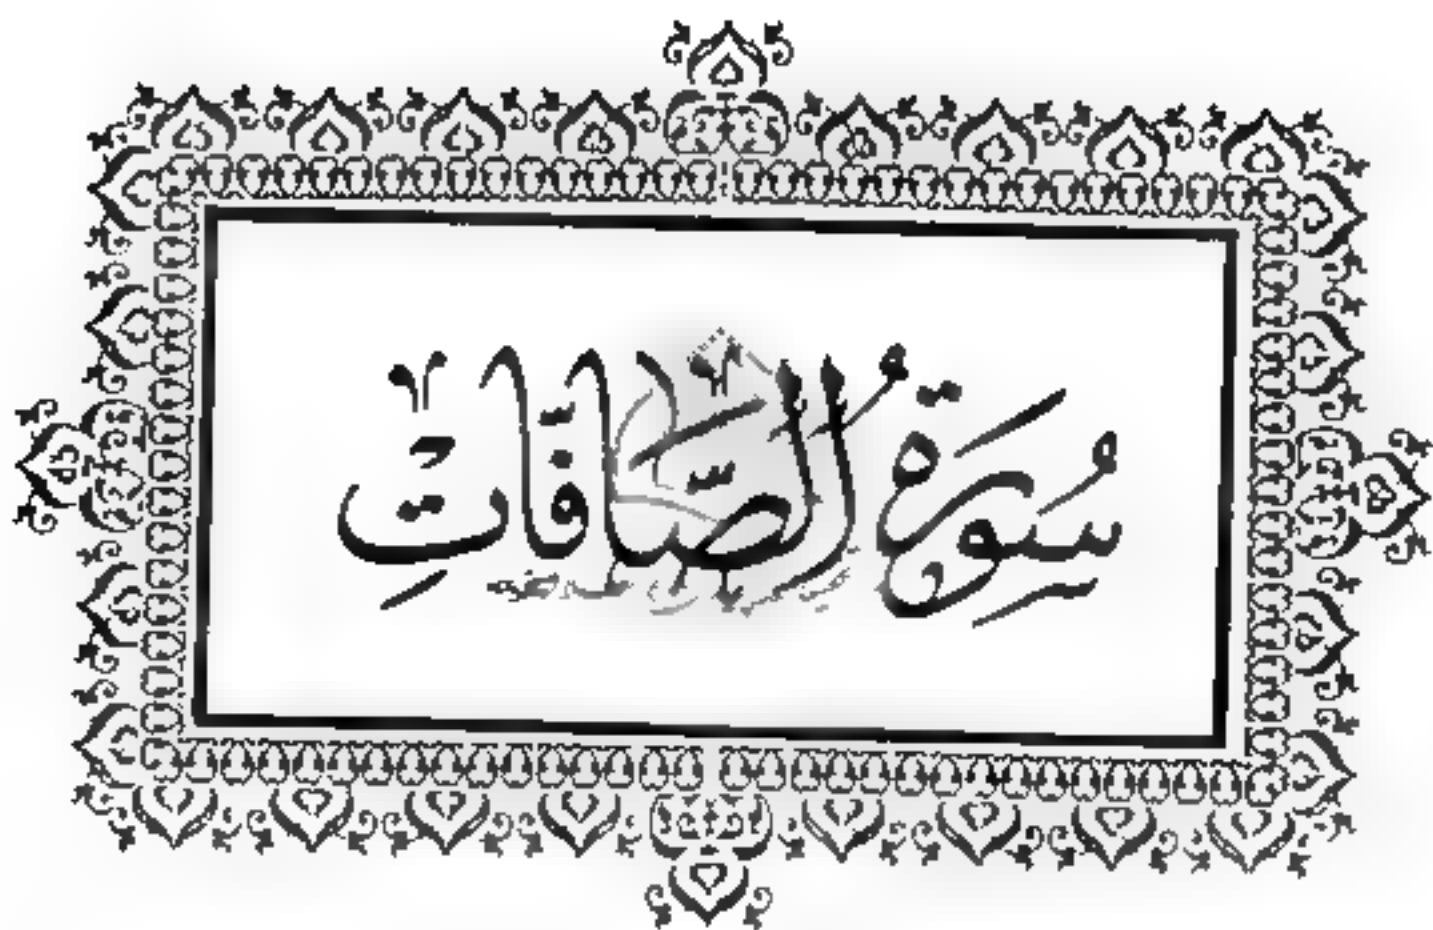 سُورَةُ الصَّافَّاتِ